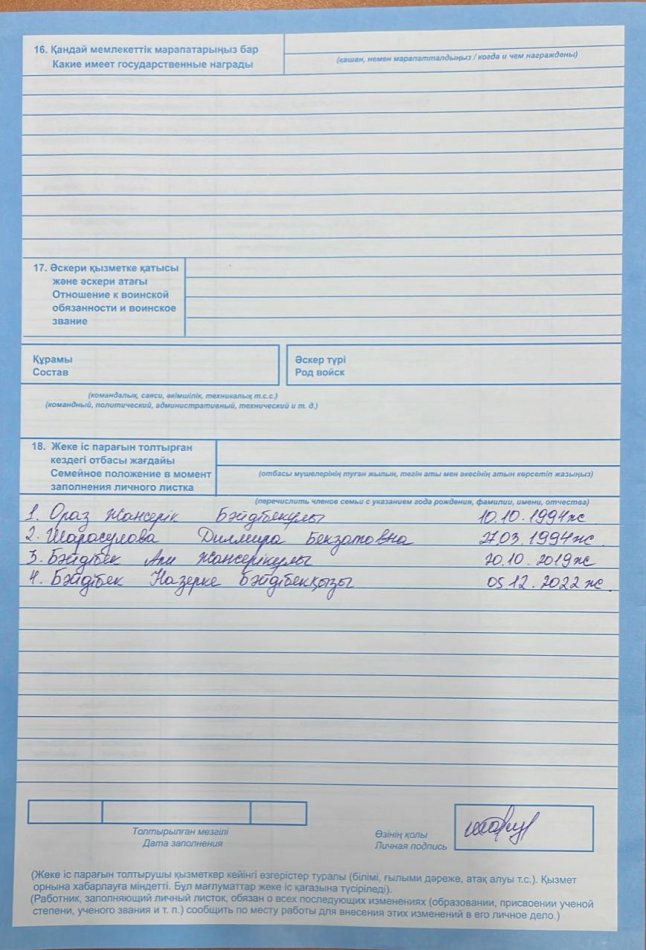 16. Қандай мемлекеттік марапатарыңыз бар
Какие имеет государственные награды
(қашан, немен марапатталдыңыз / когда и чем награждены)
17. Әскери қызметке қатысы
және әскери атағы
Отношение к воинской
обязанности и воинское
звание
Құрамы
Состав
Әскер түрі
Род войск
(командалық, саяси, әкімшілік, техникалық т.с.с.)
(командный, политический, административный, технический и т. д.)
18. Жеке іс парағын толтырған
кездегі отбасы жағдайы
Семейное положение в момент
заполнения личного листка
(отбасы мүшелерінің туған жылын, тегін аты мен әкесінің атын көрсетіп жазыңыз)
(перечислить членов семьи с указанием года рождения, фамилии, имени, отчества)
1. Ораз Жансерік Бәйдібекұлы 10.10.1994ж
2. Шарасулова Дилмира Бекзатовна 27.03.1994ж.
3. Бәйдібек Али Жансерікұлы 20.10.2019ж
4. Бәйдібек Назерке Бәйдібекқызы 05.12.2022ж.
Толтырылған мезгілі
Дата заполнения
Өзінің қолы
Личная подпись
(Жеке іс парағын толтырушы қызметкер кейінгі өзгерістер туралы (білімі, ғылыми дәреже, атақ алуы т.с.). Қызмет
орнына хабарлауға міндетті. Бұл мағлұматтар жеке іс қағазына түсіріледі).
(Работник, заполняющий личный листок, обязан о всех последующих изменениях (образовании, присвоении ученой
степени, ученого звания и т. п.) сообщить по месту работы для внесения этих изменений в его личное дело.)